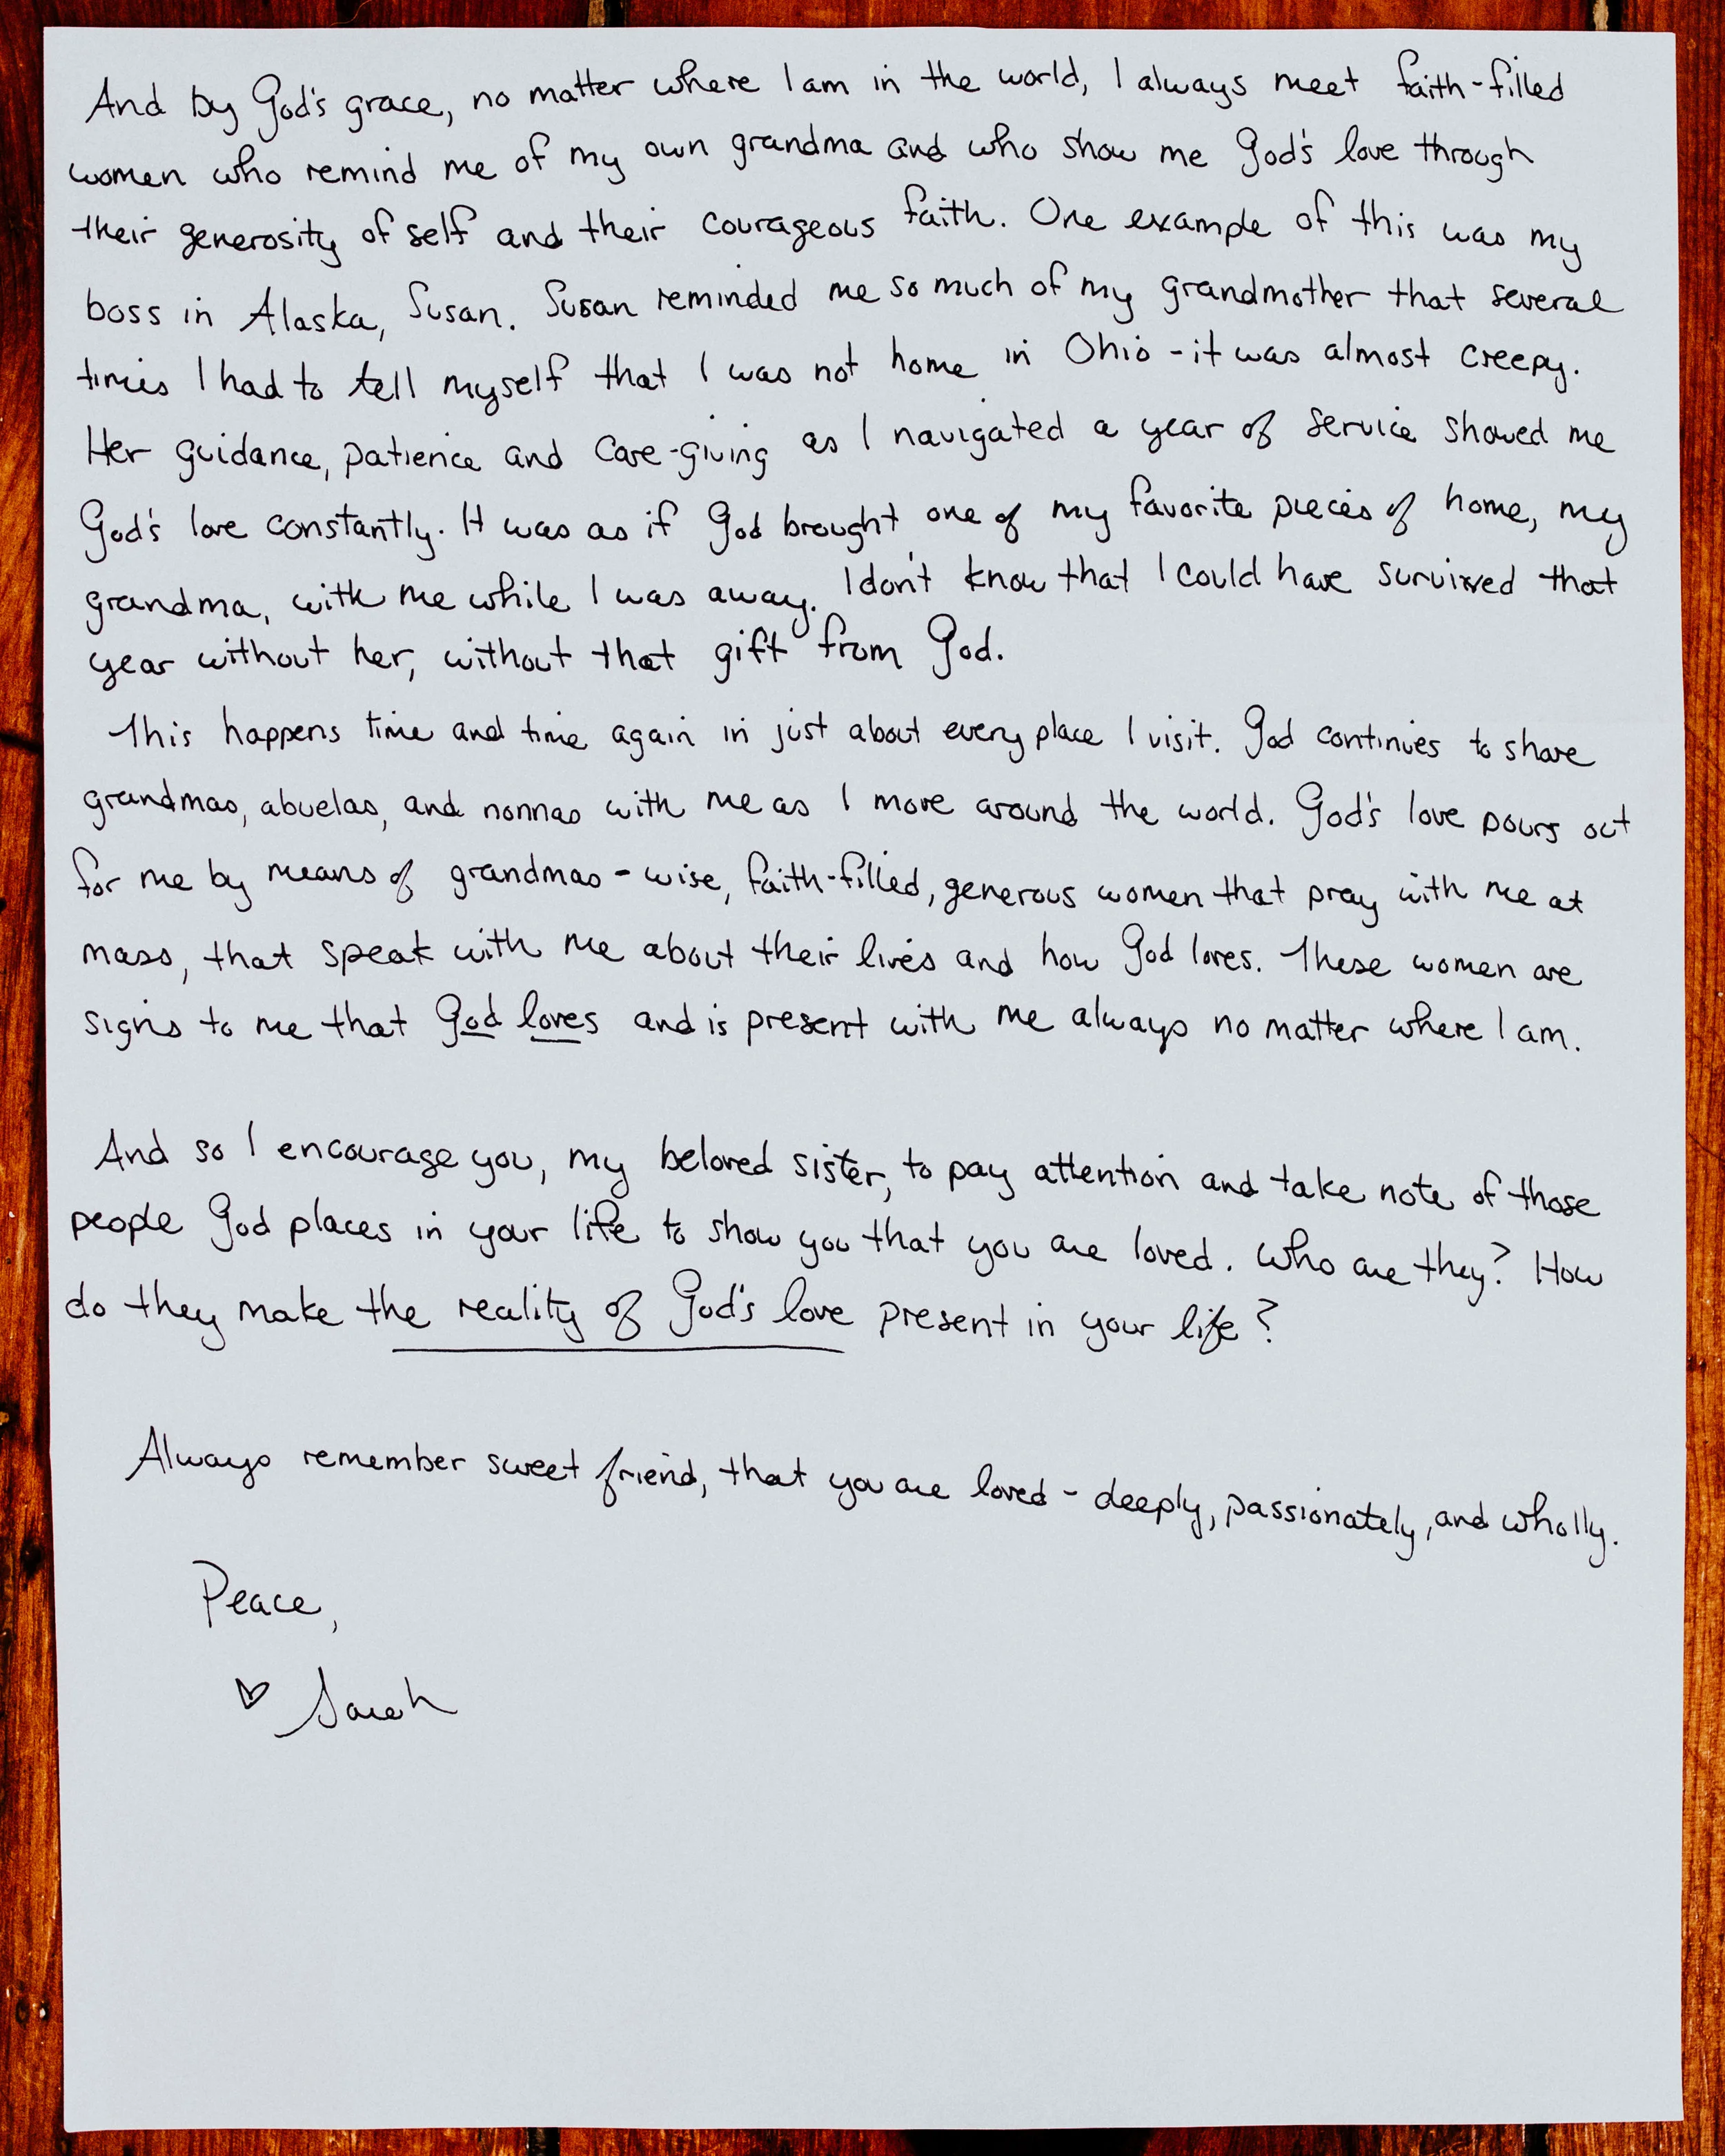 And by God's grace, no matter where I am in the world, I always meet faith-filled
women who remind me of my own grandma and who show me God's love through
their generosity of self and their courageous faith. One example of this was my
boss in Alaska, Susan. Susan reminded me so much of my grandmother that several
times I had to tell myself that I was not home in Ohio - it was almost creepy.
Her guidance, patience and care-giving as I navigated a year of service showed me
God's love constantly. It was as if God brought one of my favorite pieces of home, my
grandma, with me while I was away. I don't know that I could have survived that
year without her, without that gift from God.
This happens time and time again in just about every place I visit. God continues to share
grandmas, abuelas, and nonnas with me as I move around the world. God's love pours out
for me by means of grandmas - wise, faith-filled, generous women that pray with me at
mass, that speak with me about their lives and how God loves. These women are
signs to me that God loves and is present with me always no matter where I am.
And so I encourage you, my beloved sister, to pay attention and take note of those
people God places in your life to show you that you are loved. Who are they? How
do they make the reality of God's love present in your life?
Always remember sweet friend, that you are loved - deeply, passionately, and wholly.
Peace,
♡ Sarah